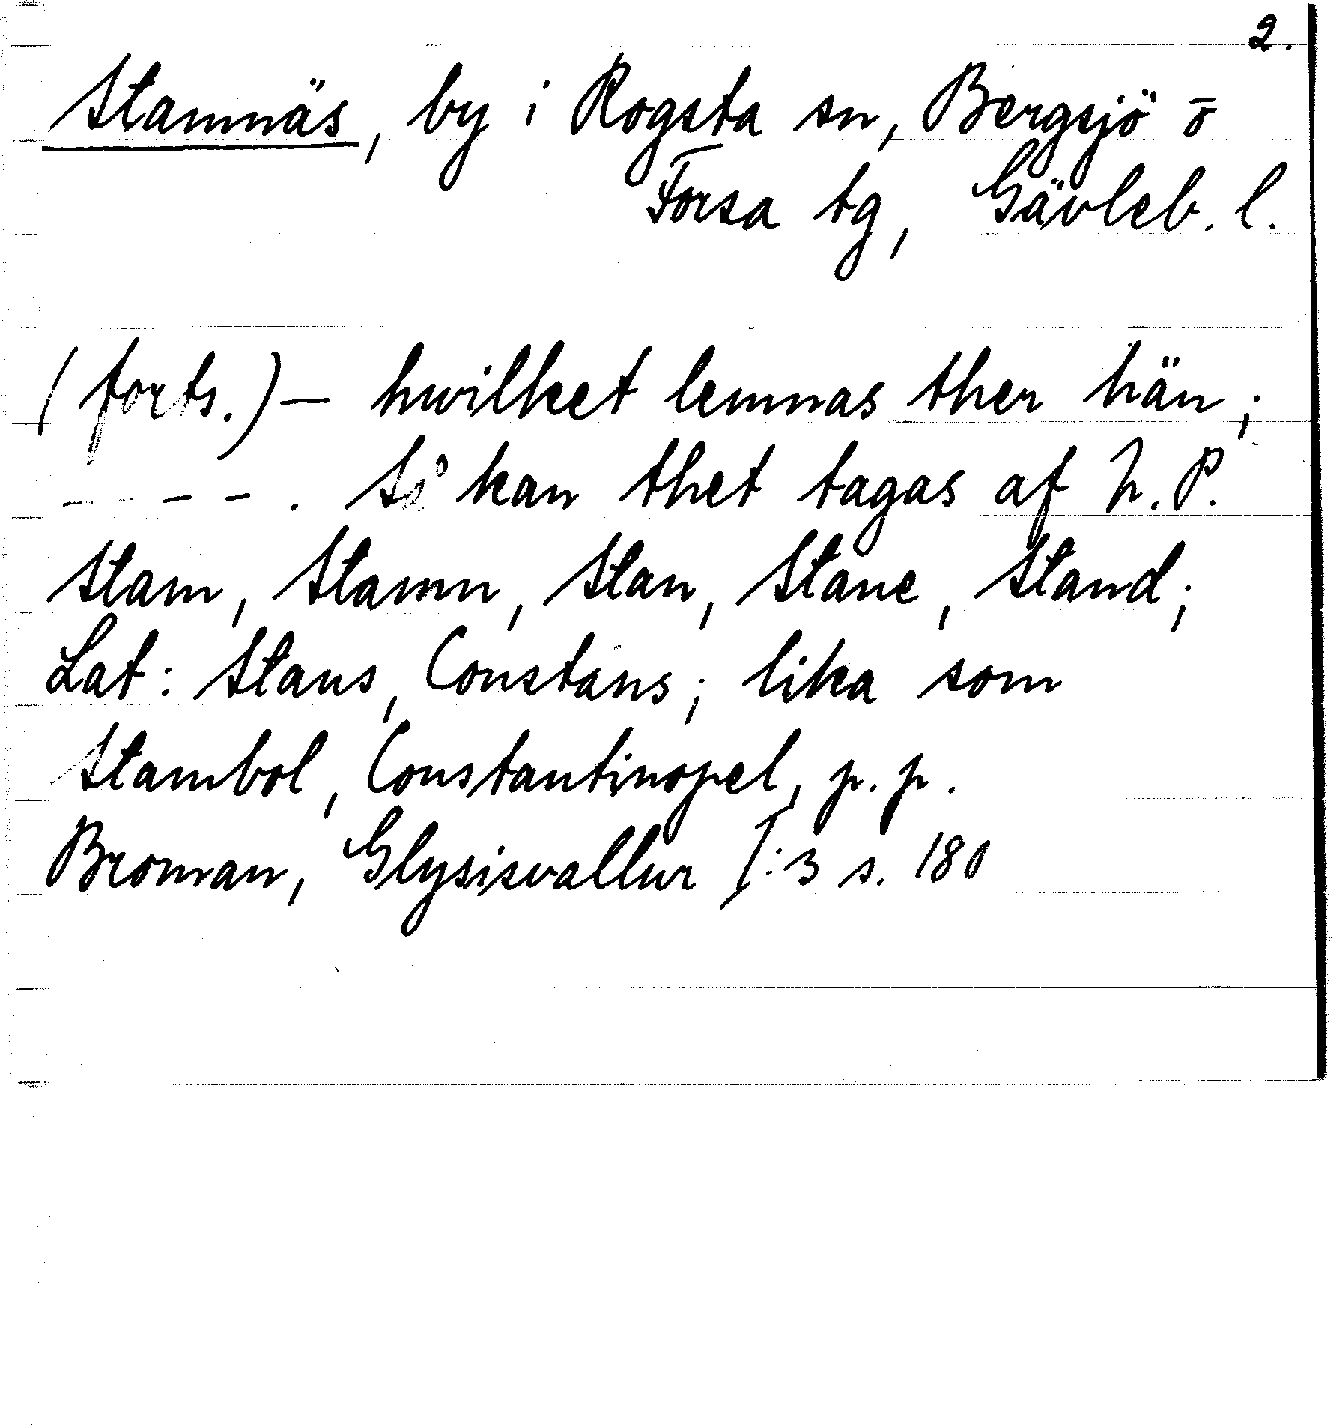 2.
Stamnäs, by i Rogsta sn, Bergsjö o
Forsa tg, Gävleb. l.
(forts.) — hwilket lemnas ther hän;
- - - - . Så kan thet tagas af N. P.
Stam, Stamn, Stan, Stane, Stand;
Lat: Stans, Constans; lika som
Stambol, Constantinopel, p. p.
Broman, Glysisvallur I:3 s. 180